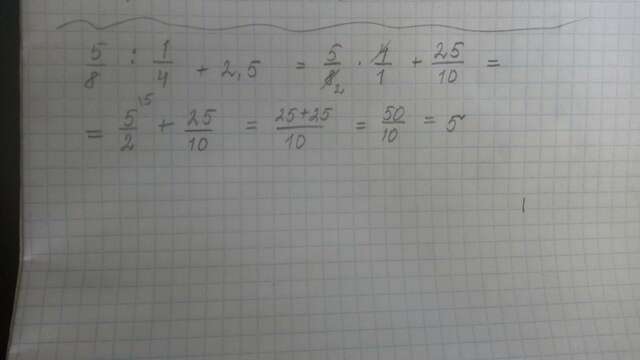 5/8 : 1/4 + 2,5 = 5/8 2 · 4/1 + 25/10 =
= 5/2 \5 + 25/10 = 25+25/10 = 50/10 = 5